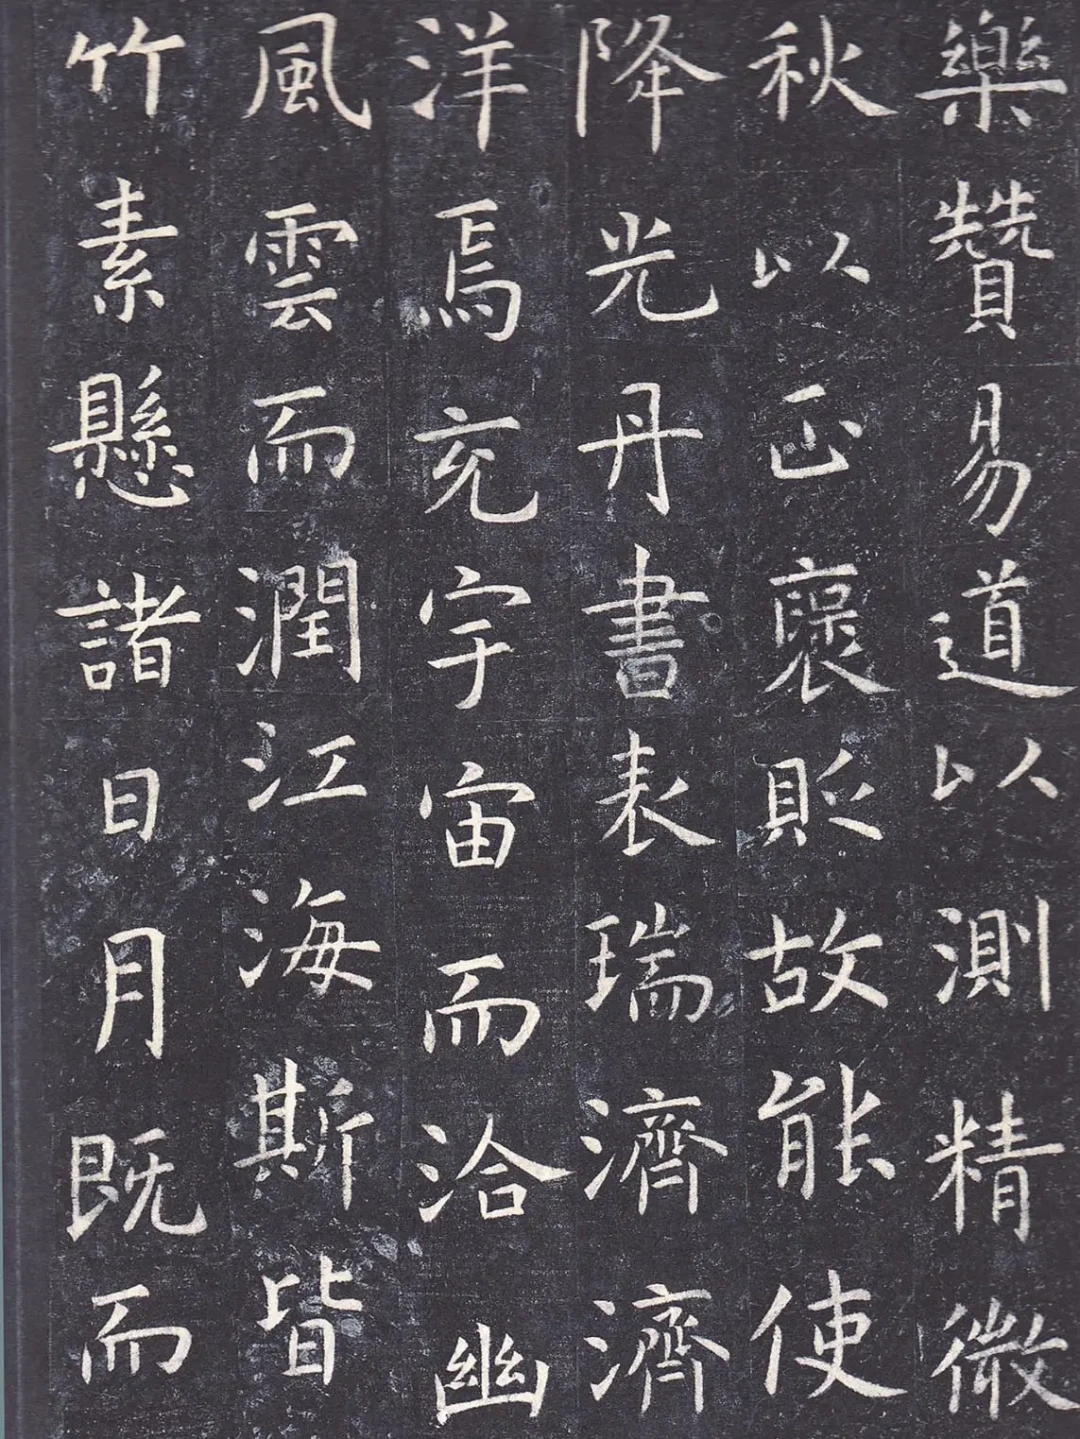 樂贊易道以測精微
秋以正褒貶故能使
降光丹書表瑞濟濟
洋焉充宇宙而洽幽
風雲而潤江海斯皆
竹素懸諸日月既而